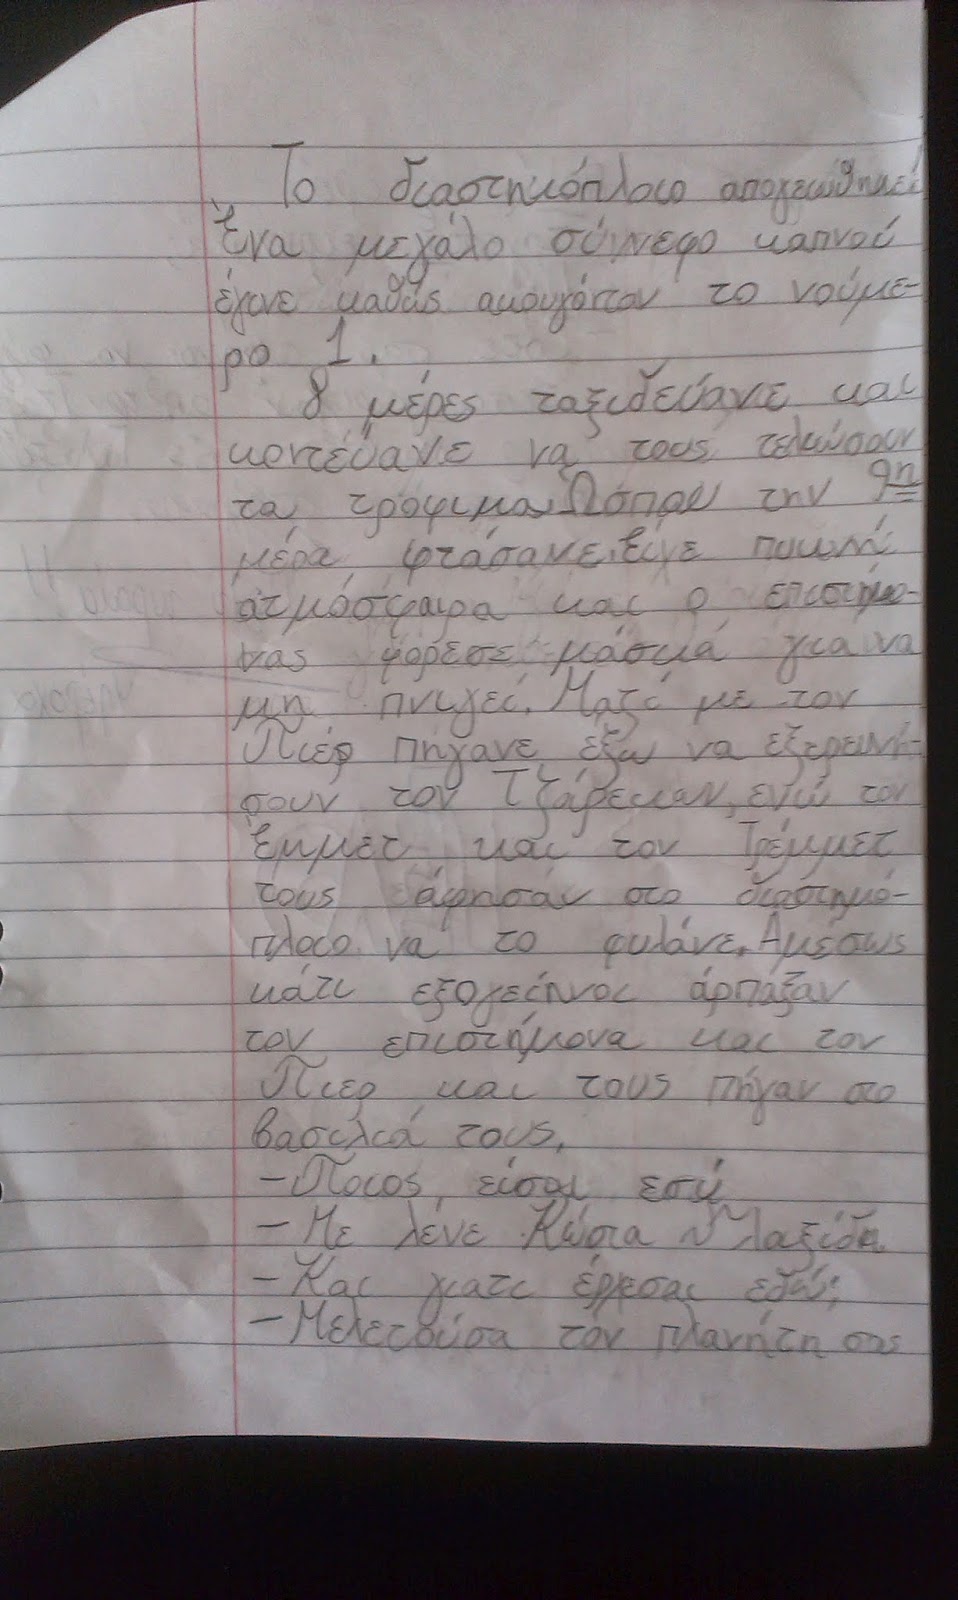 Το διαστημόπλοιο απογειώθηκε!
Ένα μεγάλο σύννεφο καπνού
έγινε καθώς ακουγόταν το νούμε-
ρο 1.
8 μέρες ταξιδεύανε και
κοντεύανε να τους τελειώσουν
τα τρόφιμα. Ώσπου την 9η
μέρα φτάσανε. Είχε πυκνή
ατμόσφαιρα και ο επιστήμο-
νας φόρεσε μάσκα για να
μη πνιγεί. Μαζί με τον
Πιέρ πήγανε έξω να εξερευνή-
σουν τον Τζάρεκαν, ενώ τον
Έμμετ και τον Τρέμμετ
τους άφησαν στο διαστημό-
πλοιο να το φυλάνε. Αμέσως
κάτι εξογείηνοι άρπαξαν
τον επιστήμονα και τον
Πιερ και τους πήγαν στο
βασιλιά τους.
- Ποιος είσαι εσύ
- Με λένε Κώστα
- Και γιατι έρχεσαι εδώ;
- Μελετούσα τον πλανήτη σας